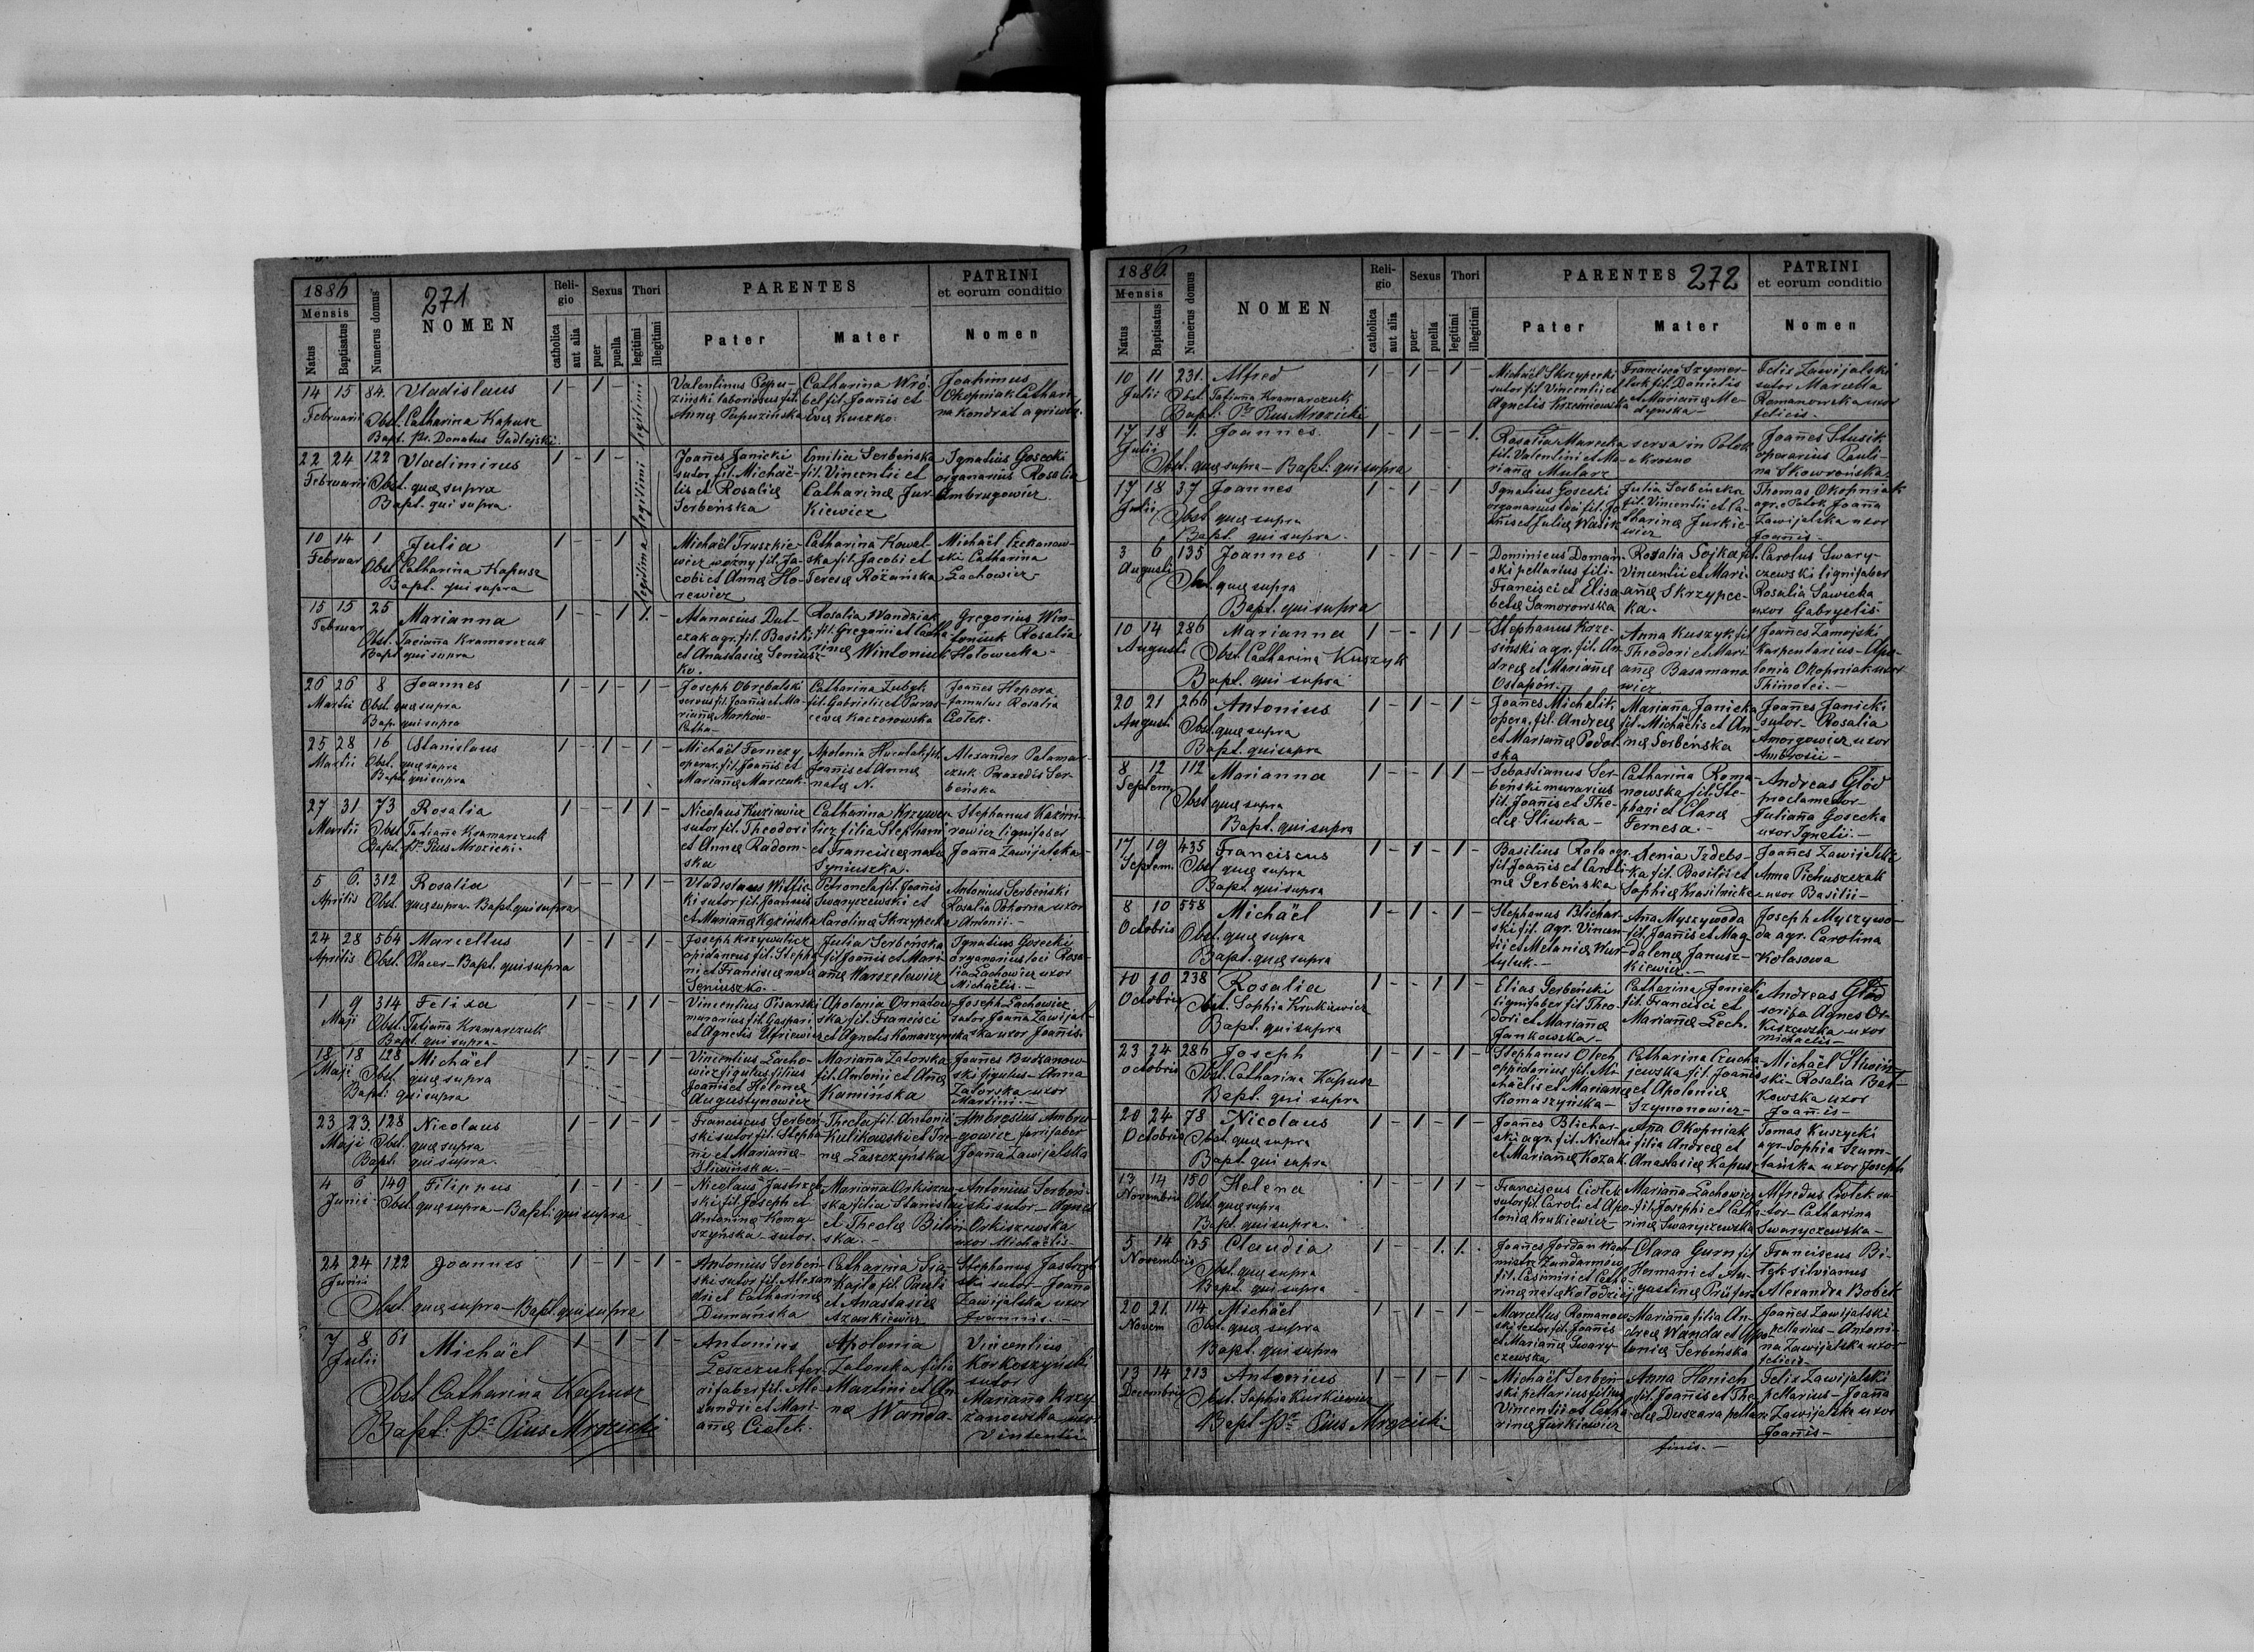 1886
271
Mensis
Natus
Baptisatus
Numerus domus
NOMEN
Religio
catholica
aut alia
Sexus
puer
puella
Thori
legitimi
illegitimi
PARENTES
Pater
Mater
PATRINI
et eorum conditio
Nomen
14 15 84. Vladislaus
Februarii Obst. Catharina Kapusz
Bapt. Pr. Donatus Sadlejski
Valentinus
laboriosus fil.
Catharina Wró-
bel fil. Joannis et
Joahimus
Okopniak Cathari-
na Kondrat agricolæ
22 24 122 Vladimirus
Februarii Obst. quæ supra
Bapt. qui supra
Joañes Janicki
sutor fil. Michaë-
lis et Rosaliæ
Serbeńska
Emilia Serbeńska
fil. Vincentii et
Catharinæ Jur-
kiewicz
Ignatius Gosecki
organarius Rosalia
Ambrugowicz
10 14 1 Julia
Februar Obst. Catharina Kapusz
Bapt. qui supra
Michaël Truszkie-
wicz woźny fil. Ja-
cobi et Annæ Ho-
rewicz
Catharina Kowal-
ska fil. Jacobi et
Teresæ Różańska
Michaël
ski Catharina
Lachowicz
15 15 25 Marianna
Februar
Obst. Taciañna Kramarczuk
Bapt. qui supra
Atanasius Dut-
czak agr. fil. Basilii
et Anastasiæ Seniusz-
ko.
Rosalia Wandziak
fil. Gregorii et Catha-
rinæ Wintoniuk
Gregorius Win-
toniuk Rosalia
26 26 8 Joannes
Martii Obst. quæ supra
Bap. qui supra
Joseph Obrębalski
servus fil. Joañis et Ma-
riañæ
Catharina Zubyk
fil. Gabrielis et Paras-
cevæ Kaczorowska
Joañes Hopora
famulus Rosalia
Ciołek.
25 28 16 Stanislaus
Martii Obst. quæ supra
Bapt. qui supra
Michaël Fernezy
operar. fil. Joañis et
Mariañæ Marczuk
Apolonia
Joañis et Annæ
natæ N.
Alexander Palamar-
czuk Praxedis Ser-
beńska
27 31 73 Rosalia
Martii Obst. Tatiañna Kramarczuk
Bapt. Pr. Pius Mrozicki.
Nicolaus Kuziewicz
sutor fil. Theodori
et Annæ Radom-
ska
Catharina Krzywu-
licz filia Stephani
et Franciscæ natæ
Syniuszka.
Stephanus
lignifaber
Joañna Zawijalska
5 6. 312 Rosalia
Aprilis Obst. quæ supra Bapt. qui supra
Vladislaus
ki sutor fil. Joannis
et Mariañæ Kozińska
Petronela fil. Joañis
Swaryczewski et
Carolinæ Skrzypecka
Antonius Serbeński
Rosalia Pohorna uxor
Antonii.
24 28 564 Marcellus
Aprilis Obst. Placer - Bapt. qui supra
Joseph Krzywulicz
opidaneus fil. Stepha-
ni et Franciscæ natæ
Seniuszko.
Julia Serbeńska
fil. Joañis et Mari-
añæ Warszelewicz
Ignatius Gosecki
organarius loci Rosa-
lia Lachowicz uxor
Michaëlis.
1 9 314 Felixa
Maji Obst. Tatiañna Kramarczuk
Bapt. qui supra
Vincentius Pisarski
murarius fil. Gaspari
et Agnetis
Apolonia Ornatow-
ska fil. Francisci
et Agnetis Komaszynska
Joseph Lachowicz
sutor Joañna Zawijal-
ska uxor Joañnis.
18 18 128 Michäel
Maji Obst. quæ supra
Bapt: qui supra
Vincentius Lacho-
wicz figulus filius
Joañis et Helenæ
Augustynowicz
Mariañna Zatorska
fil. Antonii et Añæ
Kamińska
Joañes Buszanow-
ski figulus - Anna
Zatorska uxor
Martini.
23 23. 128 Nicolaus
Maji Obst. quæ supra
Bapt. qui supra.
Franciscus Serbeń-
ski sutor fil. Stepha-
ni et Mariañæ
Śliwińska.
Thecla fil. Antonii
Kulikowski et Ire-
næ Laszczynska
Ambrosius Ambru-
gowicz ferrifaber
Joañna Zawijalska
4 6 149 Filippus
Junii Obst. quæ supra - Bapt: qui supra
Nicolaus Jastrzęb-
ski fil. Joseph et
Antoninæ Koma-
szyńska sutor.
Mariañna Orkiszew-
ska filia Stanislai
et Theclæ Bilin-
ska.
Antonius Serbeń-
ski sutor - Agnes
Orkiszewska
uxor Michaëlis
24 24 122 Joannes
Junii
Obst. quæ supra - Bapt. qui supra
Antonius Serbeń-
ski sutor fil. Alexan-
dri et Catharinæ
Dumańska
Catharina Sia-
kajlo fil. Pauli
et Anastasiæ
Azarkiewicz
Stephanus Jastrzęb-
ski sutor - Joañna
Zawijalska uxor
Joannis.
7 8 61 Michäel
Julii
Obst. Catharina Kapusz
Bapt: Pr. Pius Mrozicki
Antonius
Leszczuk fer-
rifaber fil. Ale-
xandri et Mari-
añæ Ciołek.
Apolonia
Zatorska filia
Martini et An-
næ Wanda.
Vincentius
Korkoszyński
sutor
Mariañna Krzy-
żanowska uxor
Vincentii
1886.
Mensis
Natus
Baptisatus
Numerus domus
NOMEN
Religio
catholica
aut alia
Sexus
puer
puella
Thori
legitimi
illegitimi
PARENTES 272
Pater
Mater
PATRINI
et eorum conditio
Nomen
10 11 231. Alfred
Julii Obst. Tatiañna Kramarczuk
Bapt: Pr. Pius Mrozicki
Michaël Skrzypecki
sutor fil. Vincentii et
Agnetis Krzesniowska
Francisca Szymer-
luk fil. Danielis
et Mariañæ Me-
dynska
Felix Zawijalski
sutor Marcella
Romanowska uxor
Felicis.
17 18 1. Joannes.
Julii
Obst. quæ supra - Bapt: qui supra
Rosalia Marecka serva in Potok
fil. Valentini et Ma-
riañæ Mularz
Joañes Stusik
operarius Pauli-
na Skowrońska
17 18 37 Joannes
Julii Obst. quæ supra
Bapt. qui supra.
Ignatius Gosecki
organarius loci fil. Jo-
añis et Juliæ Wasik
Julia Serbeńska
fil. Vincentii et Ca-
tharinæ Jurkie-
wicz
Thomas Okopniak
agr. Potok Joañna
Zawijalska uxor
Joañis.
3 6 135 Joannes
Augusti Obst. quæ supra
Bapt. qui supra
Dominicus Domań-
ski pellarius fili.
Francisci et Elisa-
betæ Samorowska
Rosalia Sojka fil.
Vincentii et Mari-
añæ Skrzypec-
ka.
Carolus Swary-
czewski lignifaber
Rosalia Sawicka
uxor Gabryelis
10 14 286 Marianna
Augusti Obst. Catharina Kuszyk
Bapt. qui supra
Stephanus Krze-
siński agr. fil. An-
dreæ et Mariañæ
Ostapów
Anna Kuszyk fil.
Theodori et Mari-
añæ Basamano-
wicz
Joañes Zamojski
karpentarius - Apo-
lonia Okopniak uxor
Thimotei.
20 21 266 Antonius
Augusti Obst. quæ supra
Bapt. qui supra
Joañes Michalik
opera. fil. Andreæ
et Mariañæ Podol-
ska
Mariañna Janicka
fil. Michäelis et An-
næ Serbeńska
Joañes Janicki
sutor - Rosalia
Amorgowicz uxor
Ambrosii
8 12 112 Marianna
Septem. Obst. quæ supra
Bapt. qui supra
Sebastianus Ser-
beński murarius
fil. Joañis et The-
clæ Śliwka
Catharina Roma-
nowska fil. Ste-
phani et Claræ
Fernesa.
Andreas Głód
proclamator
Juliañna Gosecka
uxor Ignatii.
17 19 435 Franciscus
Septem. Obst. quæ supra
Bapt. qui supra
Basilius Rola agr.
fil. Joañis et Caroli-
næ Serbeńska
Xenia Izdebs-
ka fil. Basilii et
Sophiæ Krasilnicka
Joañes Zawijalski
Anna Pichuszczak
uxor Basilii
8 10 558 Michäel
Octobris Obst. quæ supra
Bapt. quæ supra
Stephanus Blichar-
ski fil. agr. Vincen-
tii et Melaniæ Wur-
tyluk.
Aña Myszywoda
fil. Joañis et Mag-
dalenæ Janusz-
kiewicz.
Joseph Myszywo-
da agr. Carolina
Kolasowa
10 10 238 Rosalia
Octobris Obst. Sophia Krukiewicz
Bapt. qui supra
Elias Serbeński
lignifaber fil. Theo-
dori et Mariañæ
Jankowska
Catharina Joniak
fil. Francisci et
Mariañæ Lech.
Andreas Głód
scriba Agnes Or-
kiszewska uxor
Michaelis
23 24 286 Joseph
Octobris Obst. Catharina Kapusz
Bapt. qui supra
Stephanus Olech
oppidarius fil. Mi-
chäelis et Mariañæ
Komaszyńska
Catharina Czucha-
jewska fil. Joañis
et Apoloniæ
Szymonowicz
Michäel Śliwiń-
ski - Rosalia Bart-
kowska uxor
Joañis
20 24 78 Nicolaus
Octobris Obst. quæ supra
Bapt. qui supra
Joañes Blichar-
ski agr. fil. Nicolai
et Mariañæ Kozak
Aña Okopniak
filia Andreæ et
Anastasiæ Kapusz
Tomas Kuszycki
agr. Sophia Szum-
lańska uxor Joseph
13 14 150 Helena
Novembris Obst. quæ supra
Bapt. qui supra.
Franciscus Ciołek
sutor fil. Caroli et Apo-
loniæ Krukiewicz
Mariañna Lachowicz
fil. Josephi et Catha-
rinæ Swaryczewska
Alfredus Ciołek su-
tor - Catharina
Swaryczewska
5 14 165 Claudia
Novembris Obst. quæ supra
Bapt. qui supra
Joañes Jordan Wach-
mistrz Żandarmów
fil. Casimiri et Catha-
rinæ natæ Kołodziej
Clara Gurn fil.
Hermani et Au-
gustinæ Prüfer
Franciscus Bi-
tyk silvianus
Alexandra Bobek
20 21. 114 Michäel
Novem Obst. quæ supra
Bapt. qui supra
Marcellus Romanow-
ski textor fil. Joañis
et Mariañæ Swary-
czewska
Mariañna filia An-
dreæ Wanda et Apo-
loniæ Serbeńska
Joañes Zawijalski
pellarius - Antoni-
na Zawijalska uxor
Felicis
13 14 213 Antonius
Decembris Obst. Sophia Kurkiewicz
Bapt. Pr. Pius Mrozicki
Michäel Serbeń-
ski pellarius filius
Vincentii et Catha-
rinæ Jurkiewicz
Anna Hanich
fil. Joañis et The-
clæ Duszara
Felix Zawijalski
pellarius - Joañna
Zawijalska uxor
Joañis
finis.